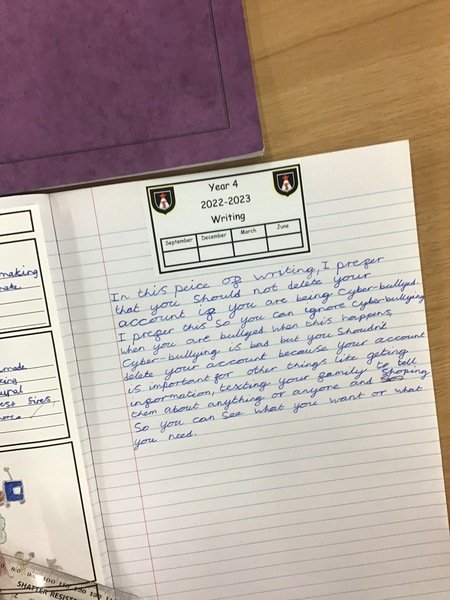 making
nate
made
ing
upal
ess Fires
more.
Year 4
2022-2023
Writing
September December March June
In this peice of writing, I prefer
that you should not delete your
account if you are being cyber-bullyed.
I prefer this so you can ignore cyber-bullying
when you are bullyed. When this happens,
Cyber-bullying is bad but you shouldn't
delete your account because your account
is important for other things like geting
information, texting your family to tell
them about anything or anyone and Shoping
So you can see what you want or what
you need.
80 90 100 110 120 130 140
SHATTER RESIST